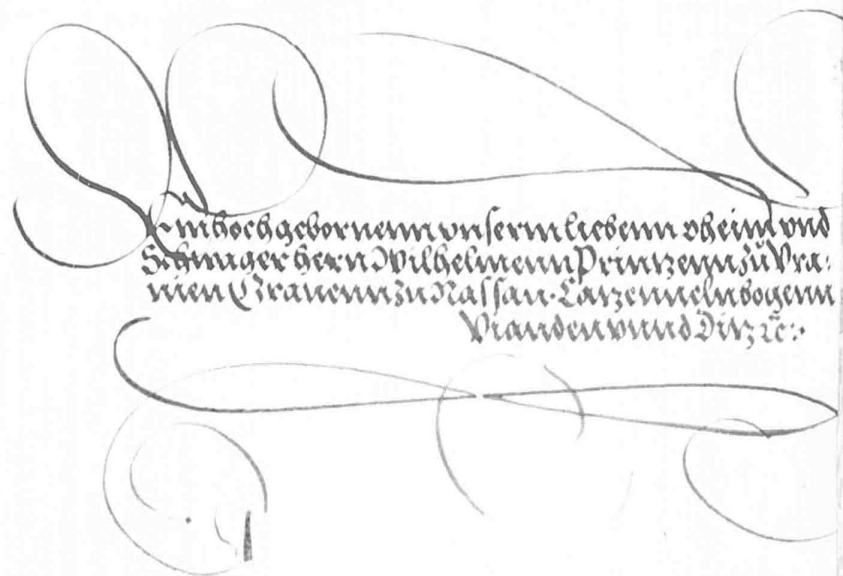 Em hochgebornenn vnserm liebenn oheim vnd
Schwager hern Wilhelmenn Printzenn zů Vra:
nien Grauenn zu Nassau· Catzennelnbogenn
Viandenn vnnd Ditz ꝛc: